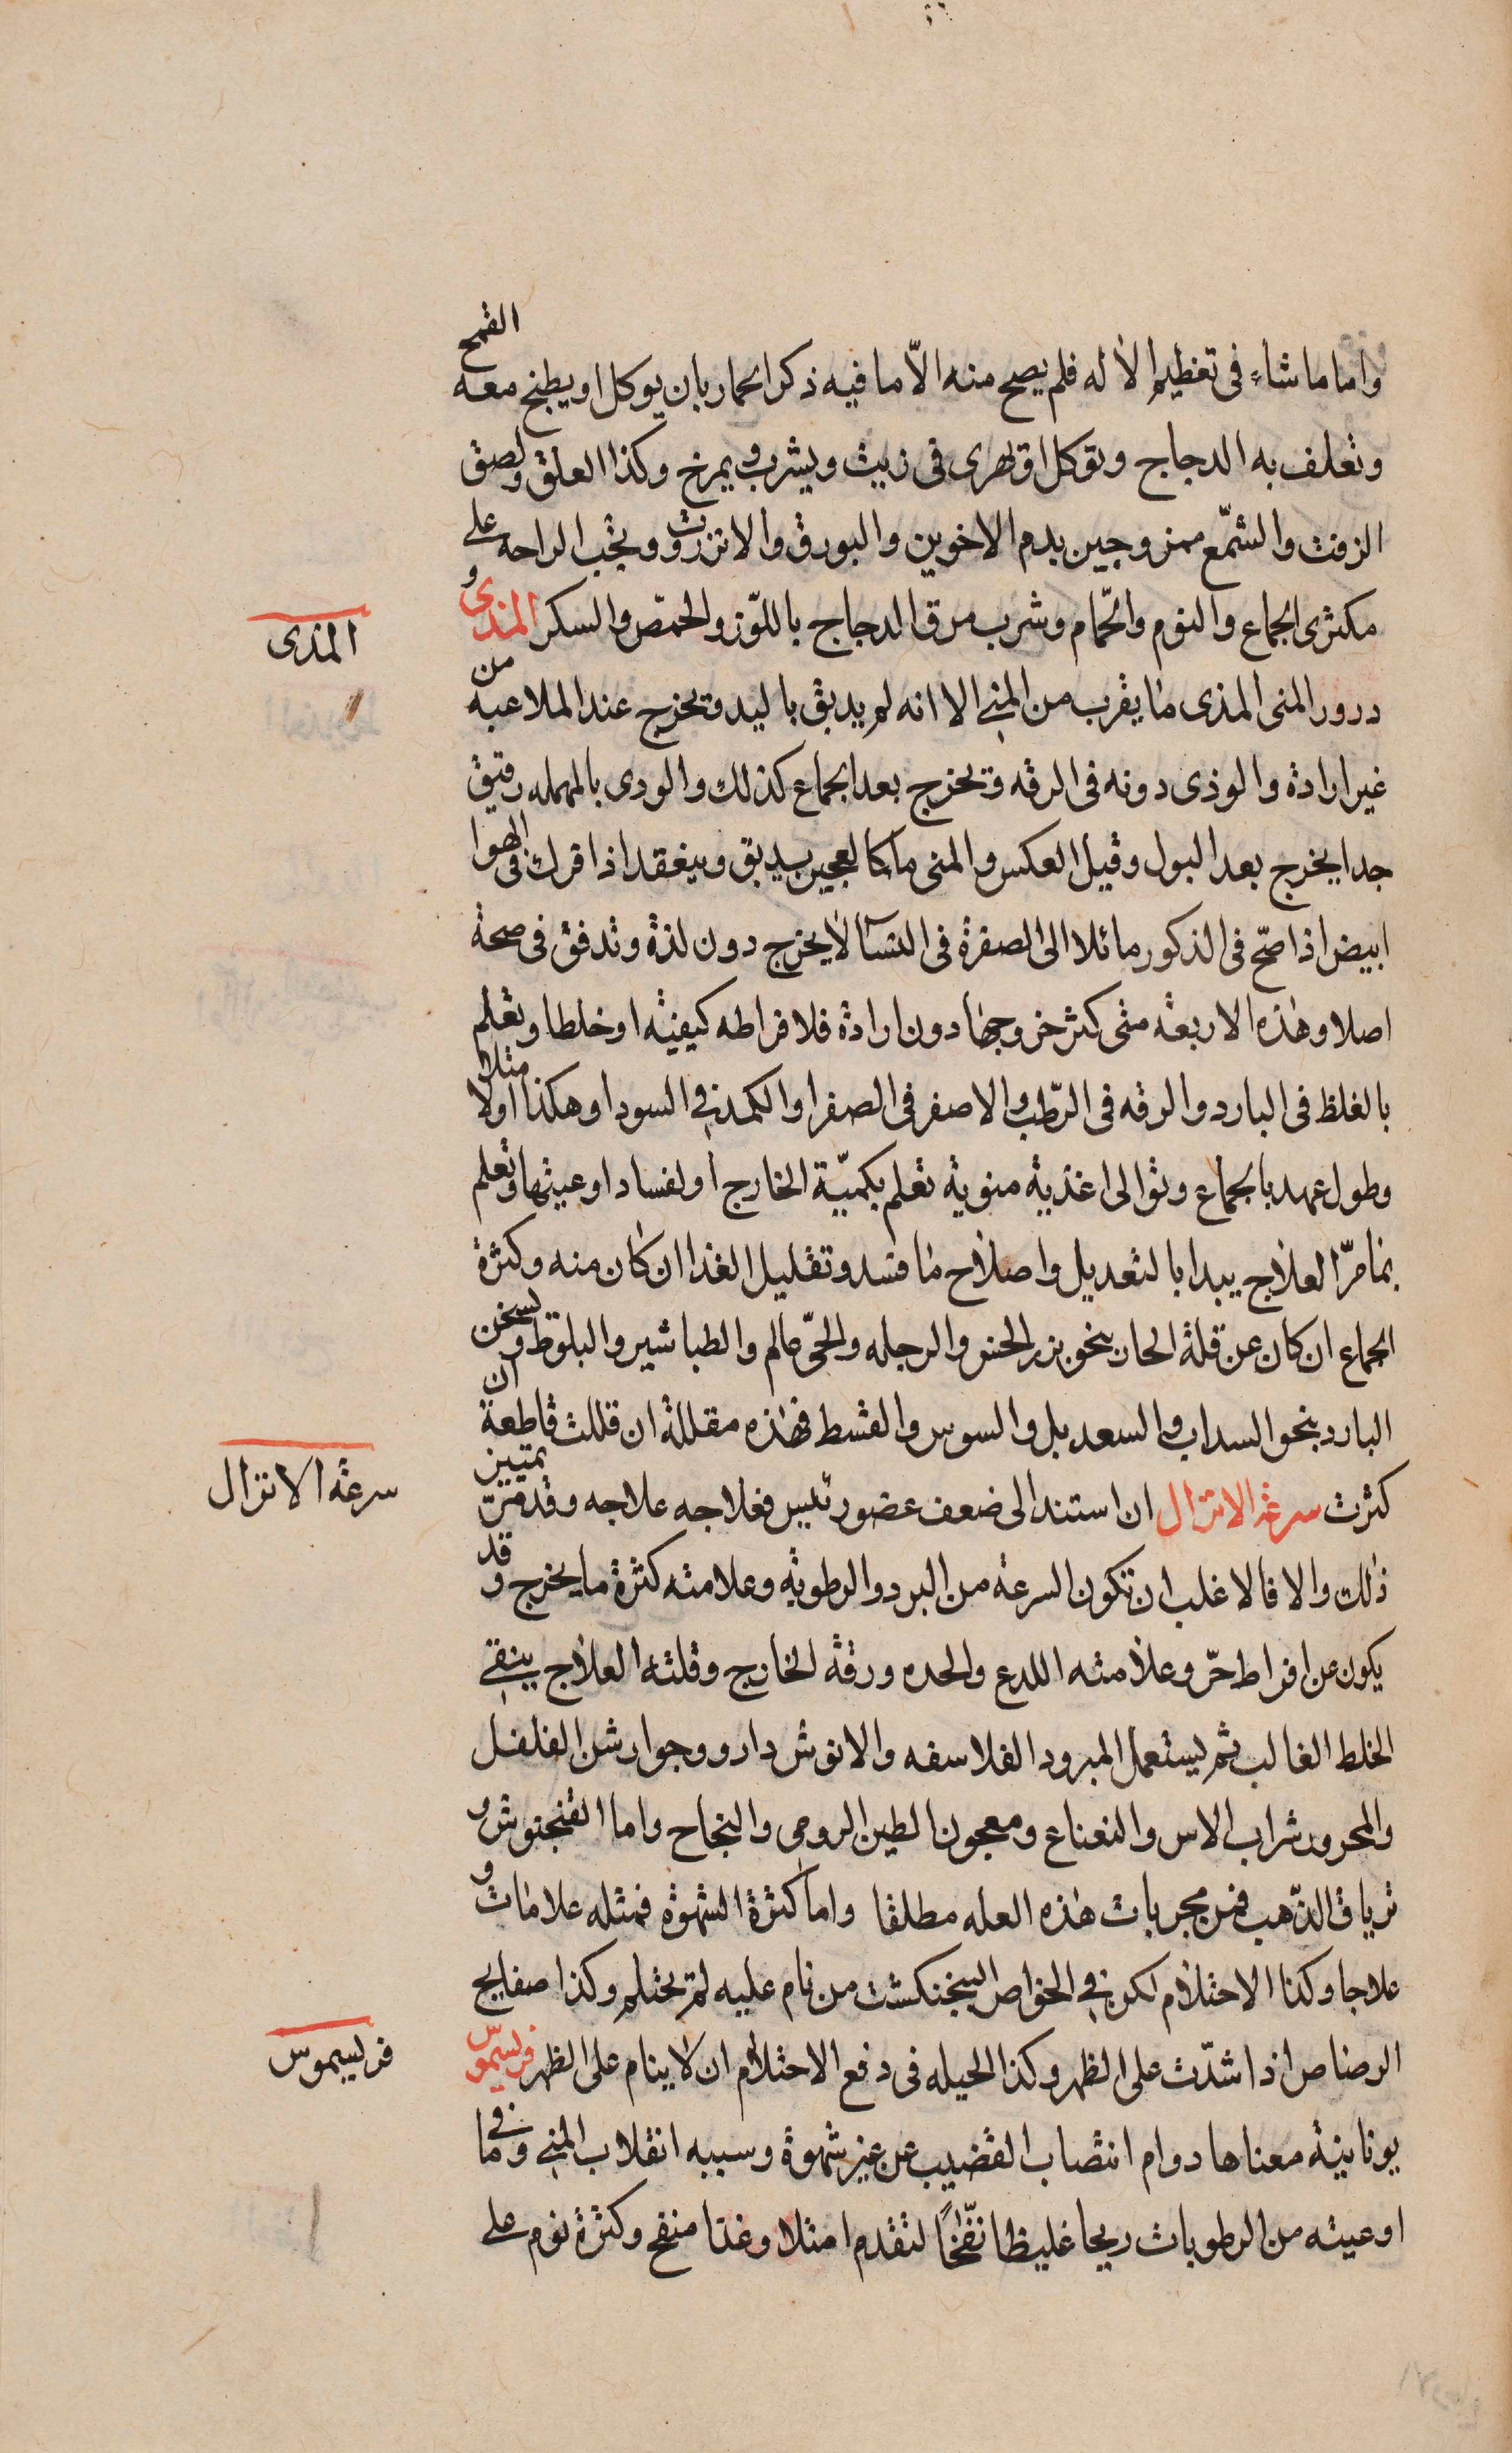 واما ما شاء فى تعظيم الاله فلم يصح منه الّا ما فيه ذكر الحمار بان يوكل او يطبخ معه القمح
وتعلف به الدجاج وتوكل او تهرى فى زيت ويشرب ويمرخ وكذا العلق ولصق
الزفت والشمّع ممزوجين بدم الاخوين والبورق والانزروت وتجب الراحه على
مكثرى الجماع والنوم والحّمام وشرب مرق الدجاج باللوّز والحمّص والسكر المذى و
المذى
درور المنى المذى ما يقرب من المنى الا انه لم يدبق باليد ويخرج عند الملاعبه من
غير ارادة والوذى دونه فى الرقه ويخرج بعد الجماع كذلك والودى بالمهمله رقيق
جدا يخرج بعد البول وقيل العكس والمنى ما كالعجين يدبق وينعقد اذا فرك فى الهوا
ابيض اذا صّح فى الذكور مائلا الى الصفرة فى النسآ لا يخرج دون لذة وتدفق فى صحة
اصلا وهذه الاربعة متى كثر خروجها دون ارادة فلافراطه كيفيته او خلطا وتعلم
بالغلظ فى البارد والرقه فى الرّطب والاصفر فى الصفرا والكمد فى السودا وهكذا اولا مثلا
وطول عهد بالجماع وتوالى اغذية منوية تعلم بكميّة الخارج او لفساد اوعيتها وتعلم
بما مرّ العلاج يبدا بالتعديل واصلاح ما فسد وتقليل الغذا ان كان منه وكثرة
الجماع ان كان عن قلة الحار بنحو بزر الخس والرجله والحىّ عالم والطباشير والبلوط وتسخن
البارد بنحو السداب والسعد بل والسوس والقسط فهذه مقللة ان قللت قاطعة ان
كثرت سرعة الانزال ان استند الى ضعف عضو رئيس فعلاجه علاجه وقد مرّ تمييز
سرعة الانزال
ذلك والا فالاغلب ان تكون السرعة من البرد والرطوبة وعلامته كثرة ما يخرج وقد
يكون عن افراط حرّ وعلامته اللدع والحده ورقة الخارج وقلته العلاج ينقى
الخلط الغالب ثم يستعمل المبرود الفلاسفه والانوش دارو وجوارش الفلفل
والمحرور شراب الاس والنعناع ومعجون الطين الرومى والنجاح واما الفنجنوش و
ترياق الذّهب فمن مجربات هذه العله مطلقا واما كثرة الشهوة فمثله علامات و
علاجا وكذا الاحتلام لكن فى الخواص البنجنكشت من نام عليه لم يحتلم وكذا صفايح
الرصاص اذا شدّت على الظهر وكذا الحيله فى دفع الاحتلام ان لا ينام على الظهر فريسيموس
فريسيموس
يونانية معناها دوام انتصاب القضيب عن غير شهوة وسببه انقلاب المنى وما فى
اوعيته من الرطوبات ريحا غليظا نفّخاً لتقدم امتلا وغذا منفخ وكثرة نوم على